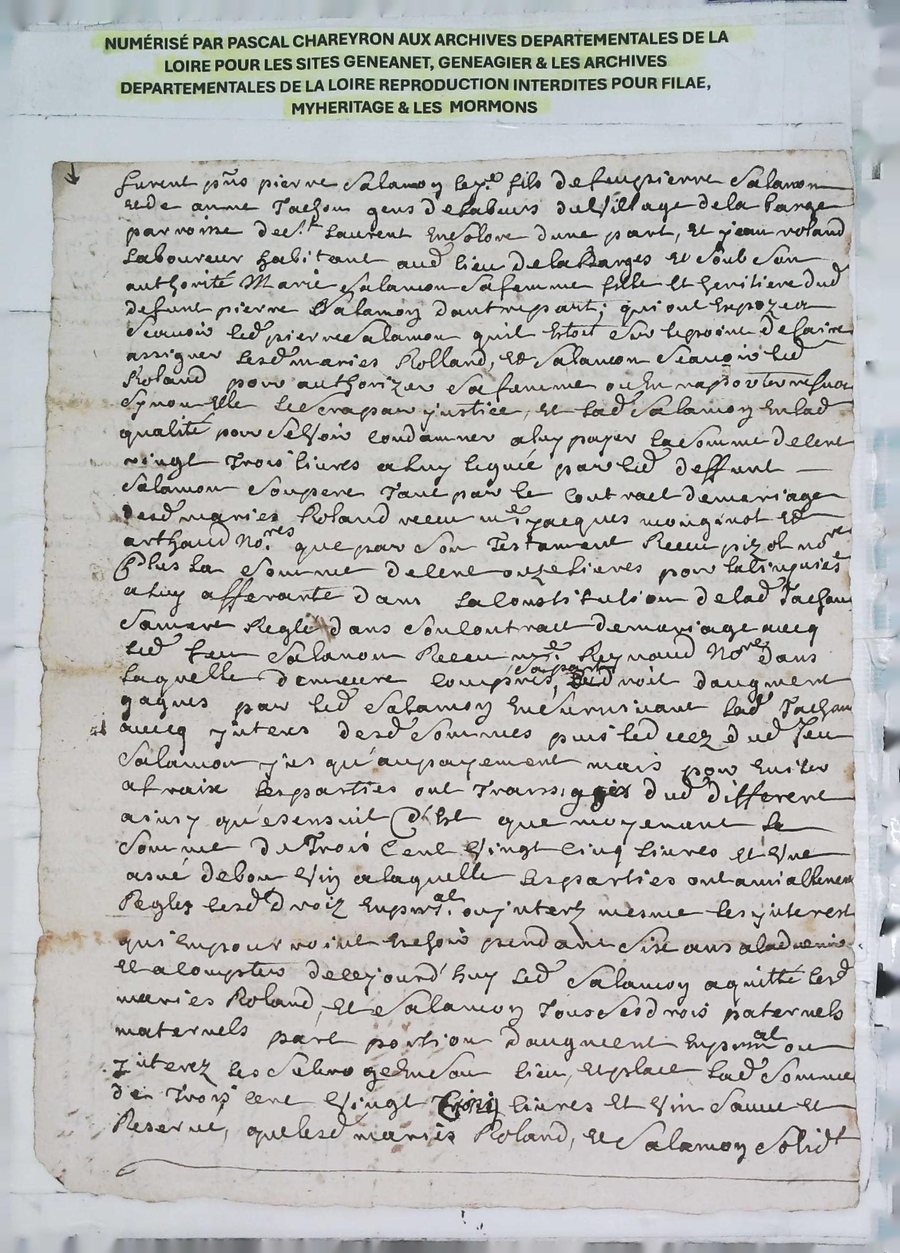 NUMÉRISÉ PAR PASCAL CHAREYRON AUX ARCHIVES DEPARTEMENTALES DE LA
LOIRE POUR LES SITES GENEANET, GENEAGIER & LES ARCHIVES
DEPARTEMENTALES DE LA LOIRE REPRODUCTION INTERDITES POUR FILAE,
MYHERITAGE & LES MORMONS
furent pñs pierre Salamon fils de feu pierre Salamon
et de anne Tachon gens de labeurs du Village de la barge
parroisse de St Laurent En Solore dune part, Et jean roland
Laboureur habitant aud lieu de la Barges Et soub son
authorité Marie Salamon sa femme fille Et heritiere dud
defunt pierre Salamon dautre part; qui ont Expozea
Scauoir led pierre Salamon quil Estoit Sur le point de faire
assigner lesd maries Rolland, Et Salamon Scauoir led
Roland pour authorizer sa femme ou En raporter refus
Synon Elle le sera par justice, Et lad Salamon En lad
qualité pour se Voir Condamner a luy payer la Somme de Cent
vingt Trois liures a luy leguée par led deffunt
Salamon Son pere Tant par le Contract de mariage
desd maries Roland receu me jacques monginot Et
arthaud Nores que par son Testament Receu pizot nore
Plus la Somme de Cent onze liures pour
a luy afferante dans la Constitution de lad Tachon
sa mere Reglé dans son Contract de mariage aueq
led feu Salamon Receu me Reynaud Nore dans
laquelle demeure Compris sa part droit daugment
gagnés par led Salamon En Suruiuant lad Tachon
aueq jnterets desd Sommes puis le decez dud feu
Salamon jusqu'au payement mais pour Euiter
a fraix les parties ont Transiggés dud different
ainsy qu'esensuit C'Est que moyenant la
Somme de Trois Cent Vingt Cinq liures Et Vne
asné de bon Vin a laquelle les parties ont amiablement
Regles lesd droiz En pral ou jnterz mesme les jnterest
qui En pourroint Eschoir pendant Six ans aladuenir
Et a Compter de Cejourd'huy led Salamon a quitté lesd
maries Roland, Et Salamon Tous ses drois paternels
maternels part portion daugment En pral ou
jnterez les Subroge En son lieu, Et place lad Somme
de Trois Cent Vingt Cinq liures Et Vin Sauue Et
Reserue, que lesd maries Roland, Et Salamon Solidt